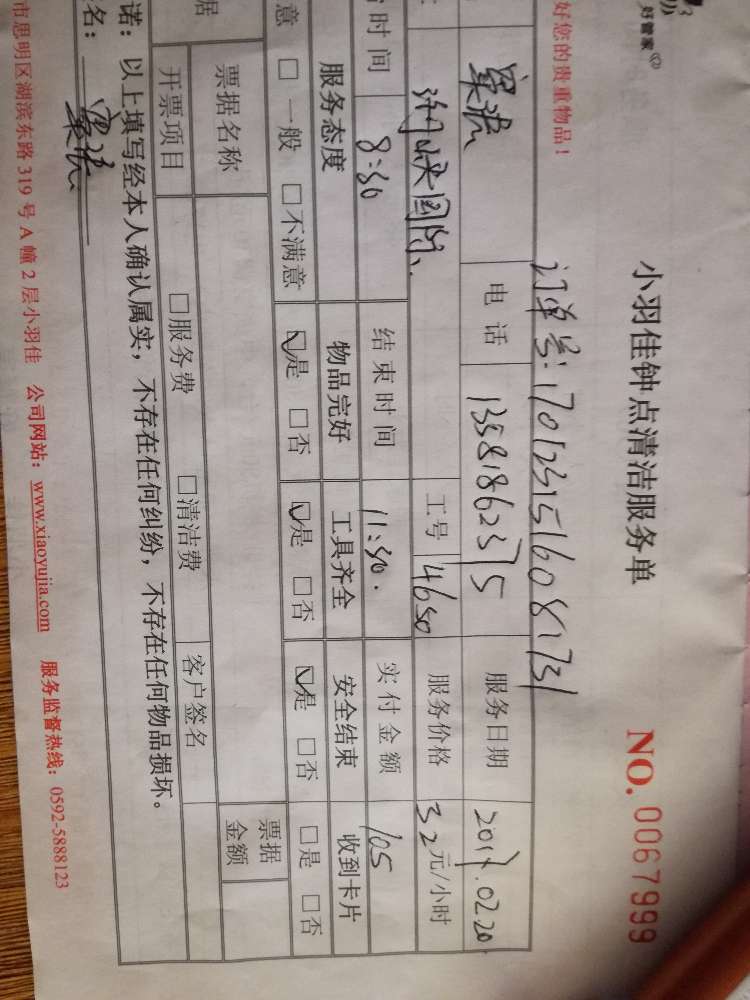 好管家
小羽佳钟点清洁服务单
NO. 0067999
好您的贵重物品！
订单号:1701231516081731
梁滨 电话 13581862375 服务日期 2017.02.20
工号 4650 服务价格 32元/小时
时间 8:30 结束时间 11:30. 实付金额 105
服务态度 物品完好 工具齐全 安全结束 收到卡片
意 □一般 □不满意 ☑是 □否 ☑是 □否 ☑是 □否 □是 □否
据 票据名称 票据金额
开票项目 □服务费 □清洁费 客户签名
诺：以上填写经本人确认属实，不存在任何纠纷，不存在任何物品损坏。
名：梁滨
市思明区湖滨东路 319 号 A 幢 2 层小羽佳 公司网站：www.xiaoyujia.com 服务监督热线：0592-5888123